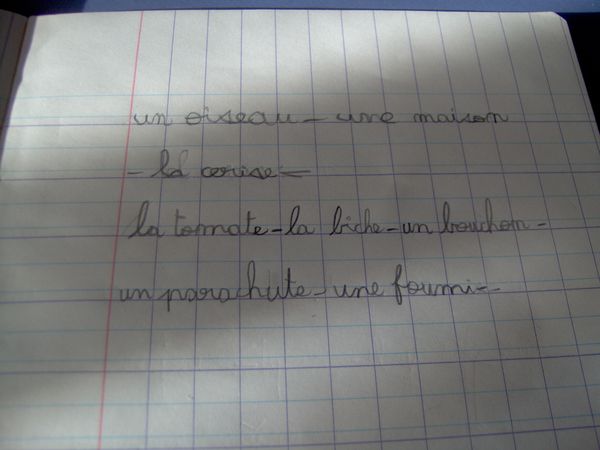 un oiseau - une maison
- la cerise -
la tomate - la biche - un bouchon -
un parachute - une fourmi -